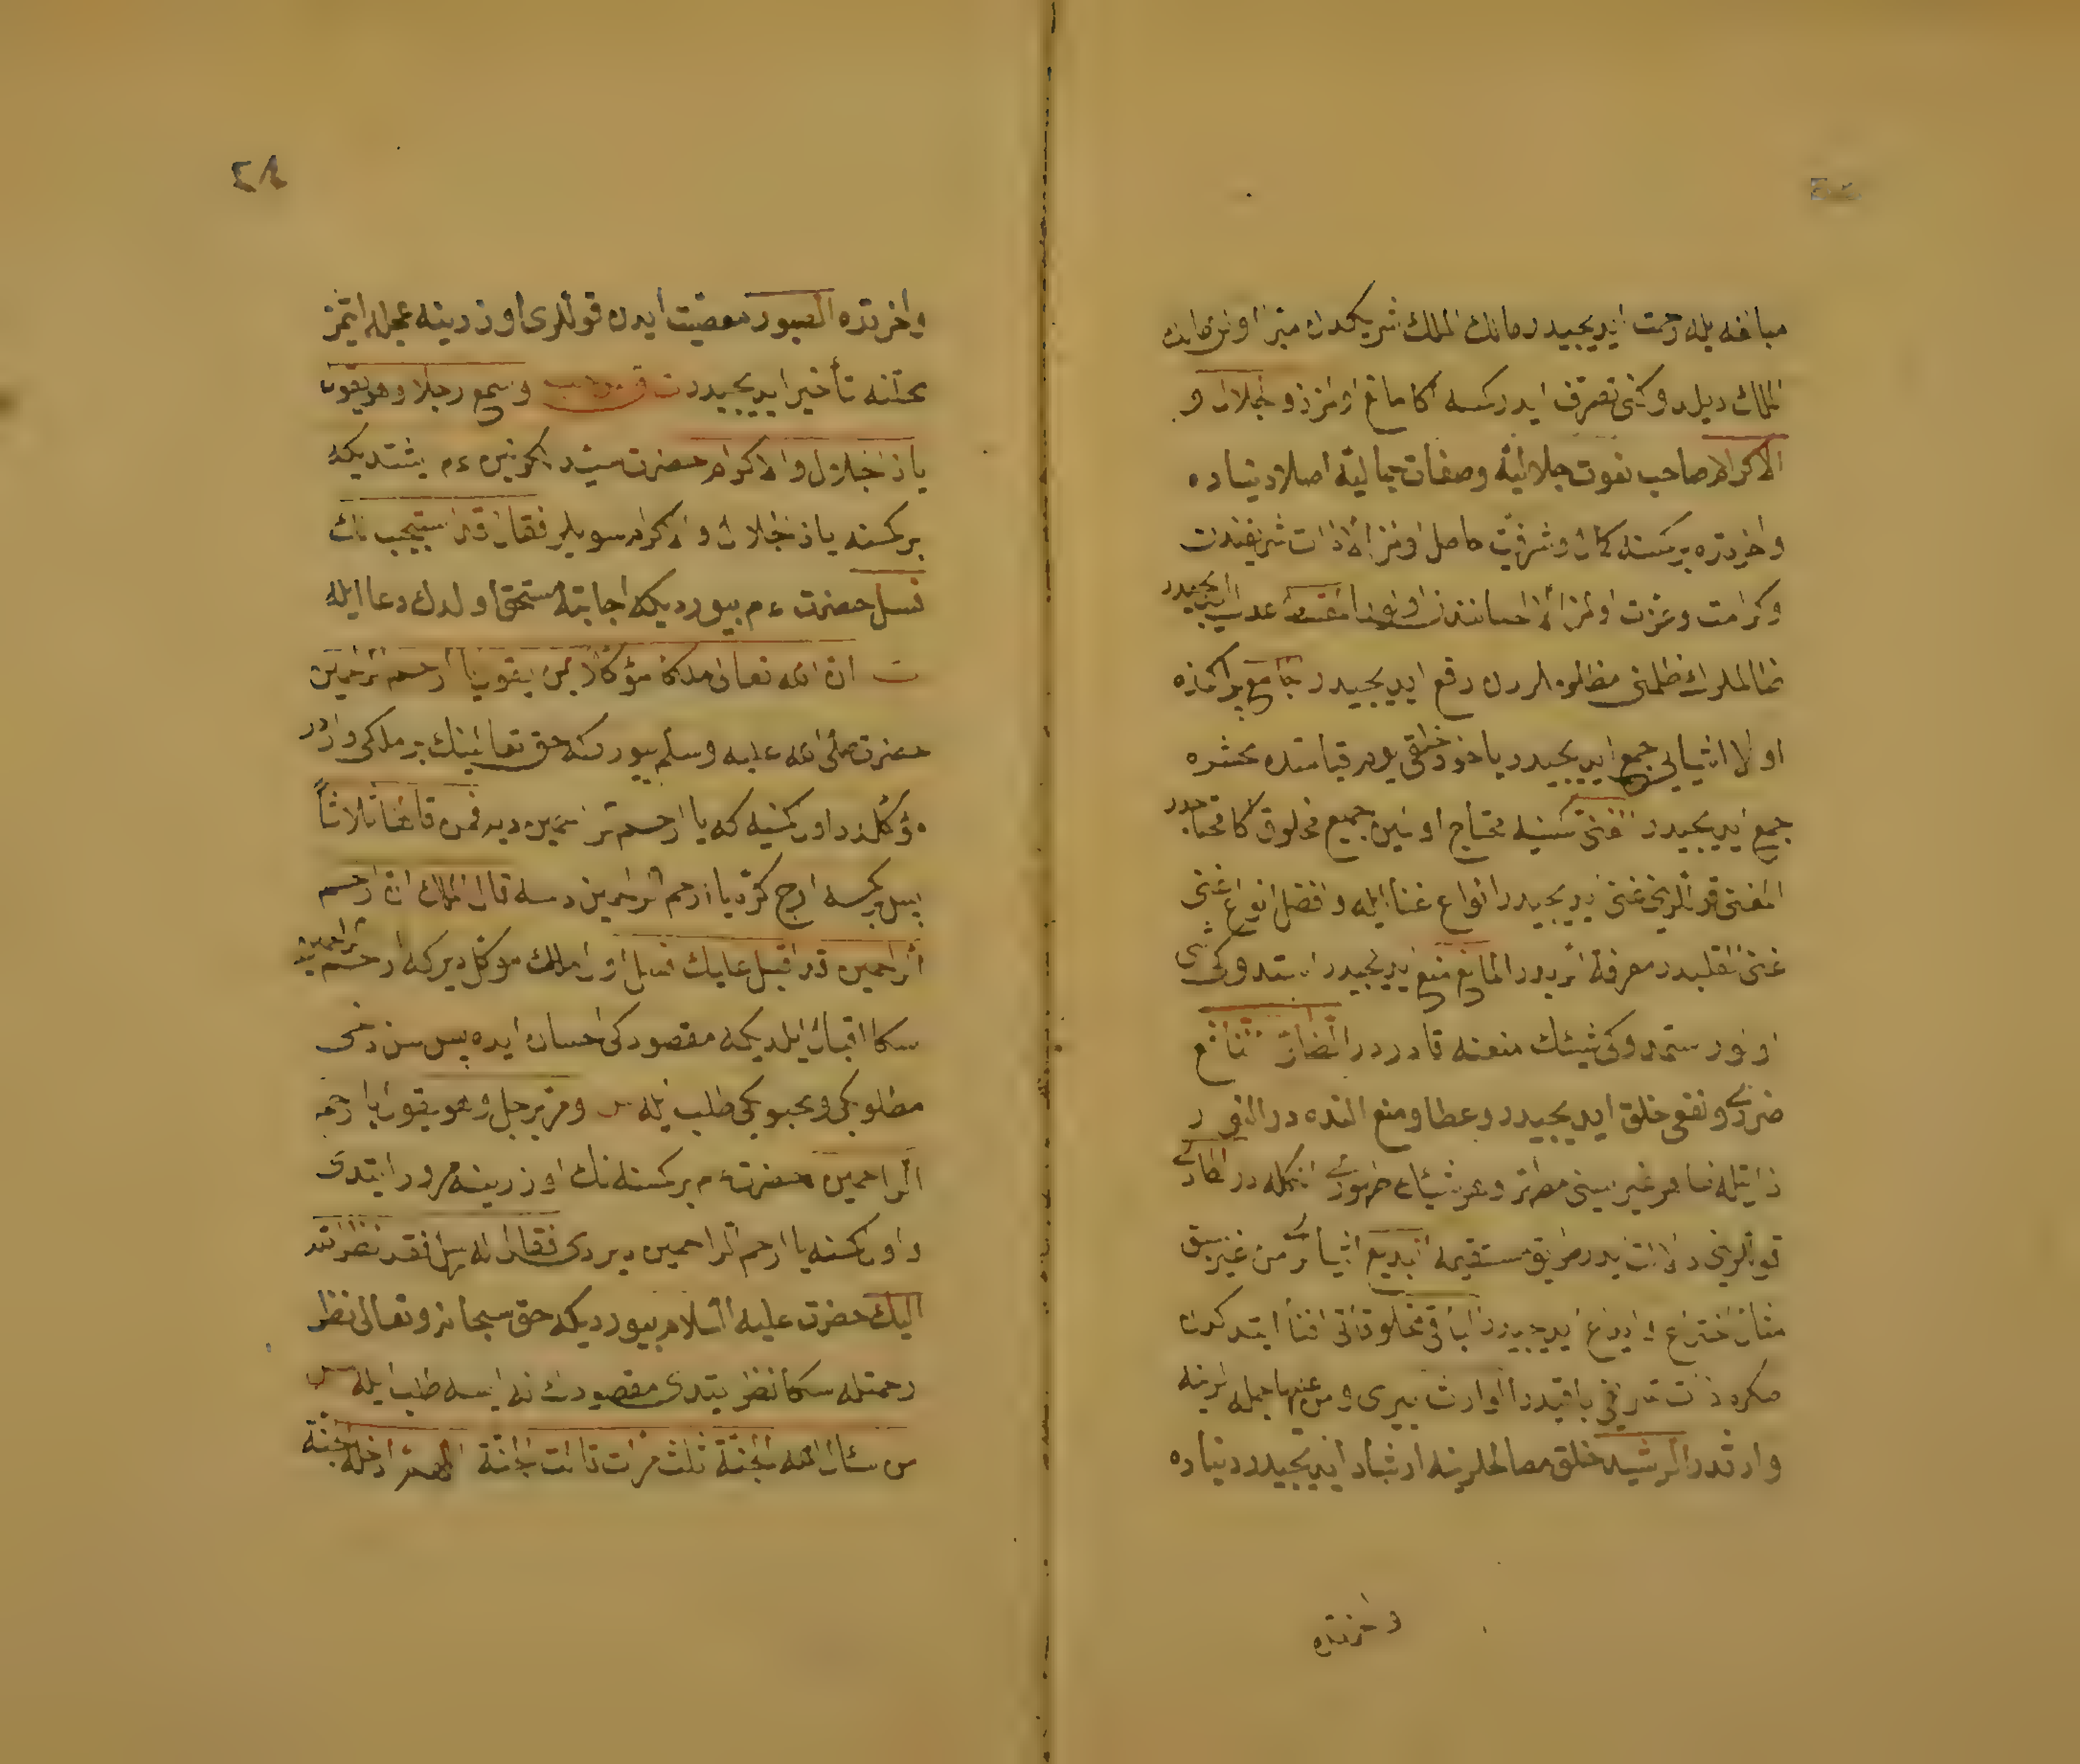 مبالغه یله رحمت ایدیجیدر مالك الملك شریكدن مبرا اولان
الملك دیلدوكنی تصرف ایدر كمسه اكا مانع اولمز ذو الجلال و
الاكرام صاحب نعوت جلالیه وصفات جمالیه اصلا دنیاده
واخرتده بر كمسنه كمال وشرفیت حاصل اولمز الا ذات شریفندن
وكرامت وعزت اولمز الا احسانندن المقسط عدل ایدیجیدر
ظالملرك ظلمنی مظلوملردن دفع ایدیجیدر الجامع پراكنده
اولان اشیایی جمع ایدیجیدر یاخود خلقی یوم قیامتده محشرده
جمع ایدیجیدر الغنی كمسنیه محتاج اولمین جمیع مخلوق اكا محتاجدر
المغنی قوللرینی غنی ایدیجیدر انواع غنا ایله وافضل انواع غنی
غنی القلبدر معرفة الله ایله در المانع منع ایدیجیدر استدوكی شی
اولور استمدوكی شیئك منعنه قادردر الضار النافع
ضرری ونفعی خلق ایدیجیدر وعطا ومنع النده در النور
ذاتیله ظاهر غیریسنی مظهر وهر شیئك ظهوری انكله در الهادی
قوللرینی طریق مستقیمه البدیع اشیایی من غیر سبق
مثال اختراع وابداع ایدیجیدر الباقی مخلوقاتی افنا ایتدكدن
صكره ذات شریفی باقیدر الوارث یری ومن علیها جمله لرینه
وارثدر الرشید خلق مصالحلرینه ارشاد ایدیجیدر دنیاده
واخرتده
٢٤
واخرتده الصبور معصیت ایدن قوللری اوزرینه عجله ایتمز
محلنه تأخیر ایدیجیدر ت وسمع رجلا وهو یقول
یا ذا الجلال والاكرام حضرت سید الكونین ءم یشتدیكه
بر كمسنه یا ذا الجلال والاكرام سویلر فقال قد استجیب لك
فسل حضرت ءم بیوردیكه اجابته مستحق اولدك دعا ایله
ان الله تعالی ملكا موكلا بمن یقول یا ارحم الراحمین
حضرت صلی الله علیه وسلم بیوردیكه حق تعالینك بر ملكی واردر
موكلدر اول كمسنیه كه یا ارحم الراحمین دیر فمن قالها ثلاثا
پس بر كمسه اوج كره یا ارحم الراحمین دسه قال الملك ان ارحم
الراحمین قد اقبل علیك فسل اول ملك موكل دیر كه ارحم الراحمین
سكا اقبال ایلدیكه مقصودكی احسان ایده پس سن دخی
مطلوبكی ومحبوبكی طلب ایله ومر برجل وهو یقول یا ارحم
الراحمین حضرت ءم بر كمسنه نك اوزرینه مرور ایتدی
واول كمسنه یا ارحم الراحمین دیردی فقال له سل فقد نظر الله
الیك حضرت علیه السلام بیوردیكه حق سبحانه وتعالی نظر
رحمتله سكا نظر ایتدی مقصودك نه ایسه طلب ایله
من سأل الله الجنة ثلث مرات قالت الجنة اللهم ادخله الجنة